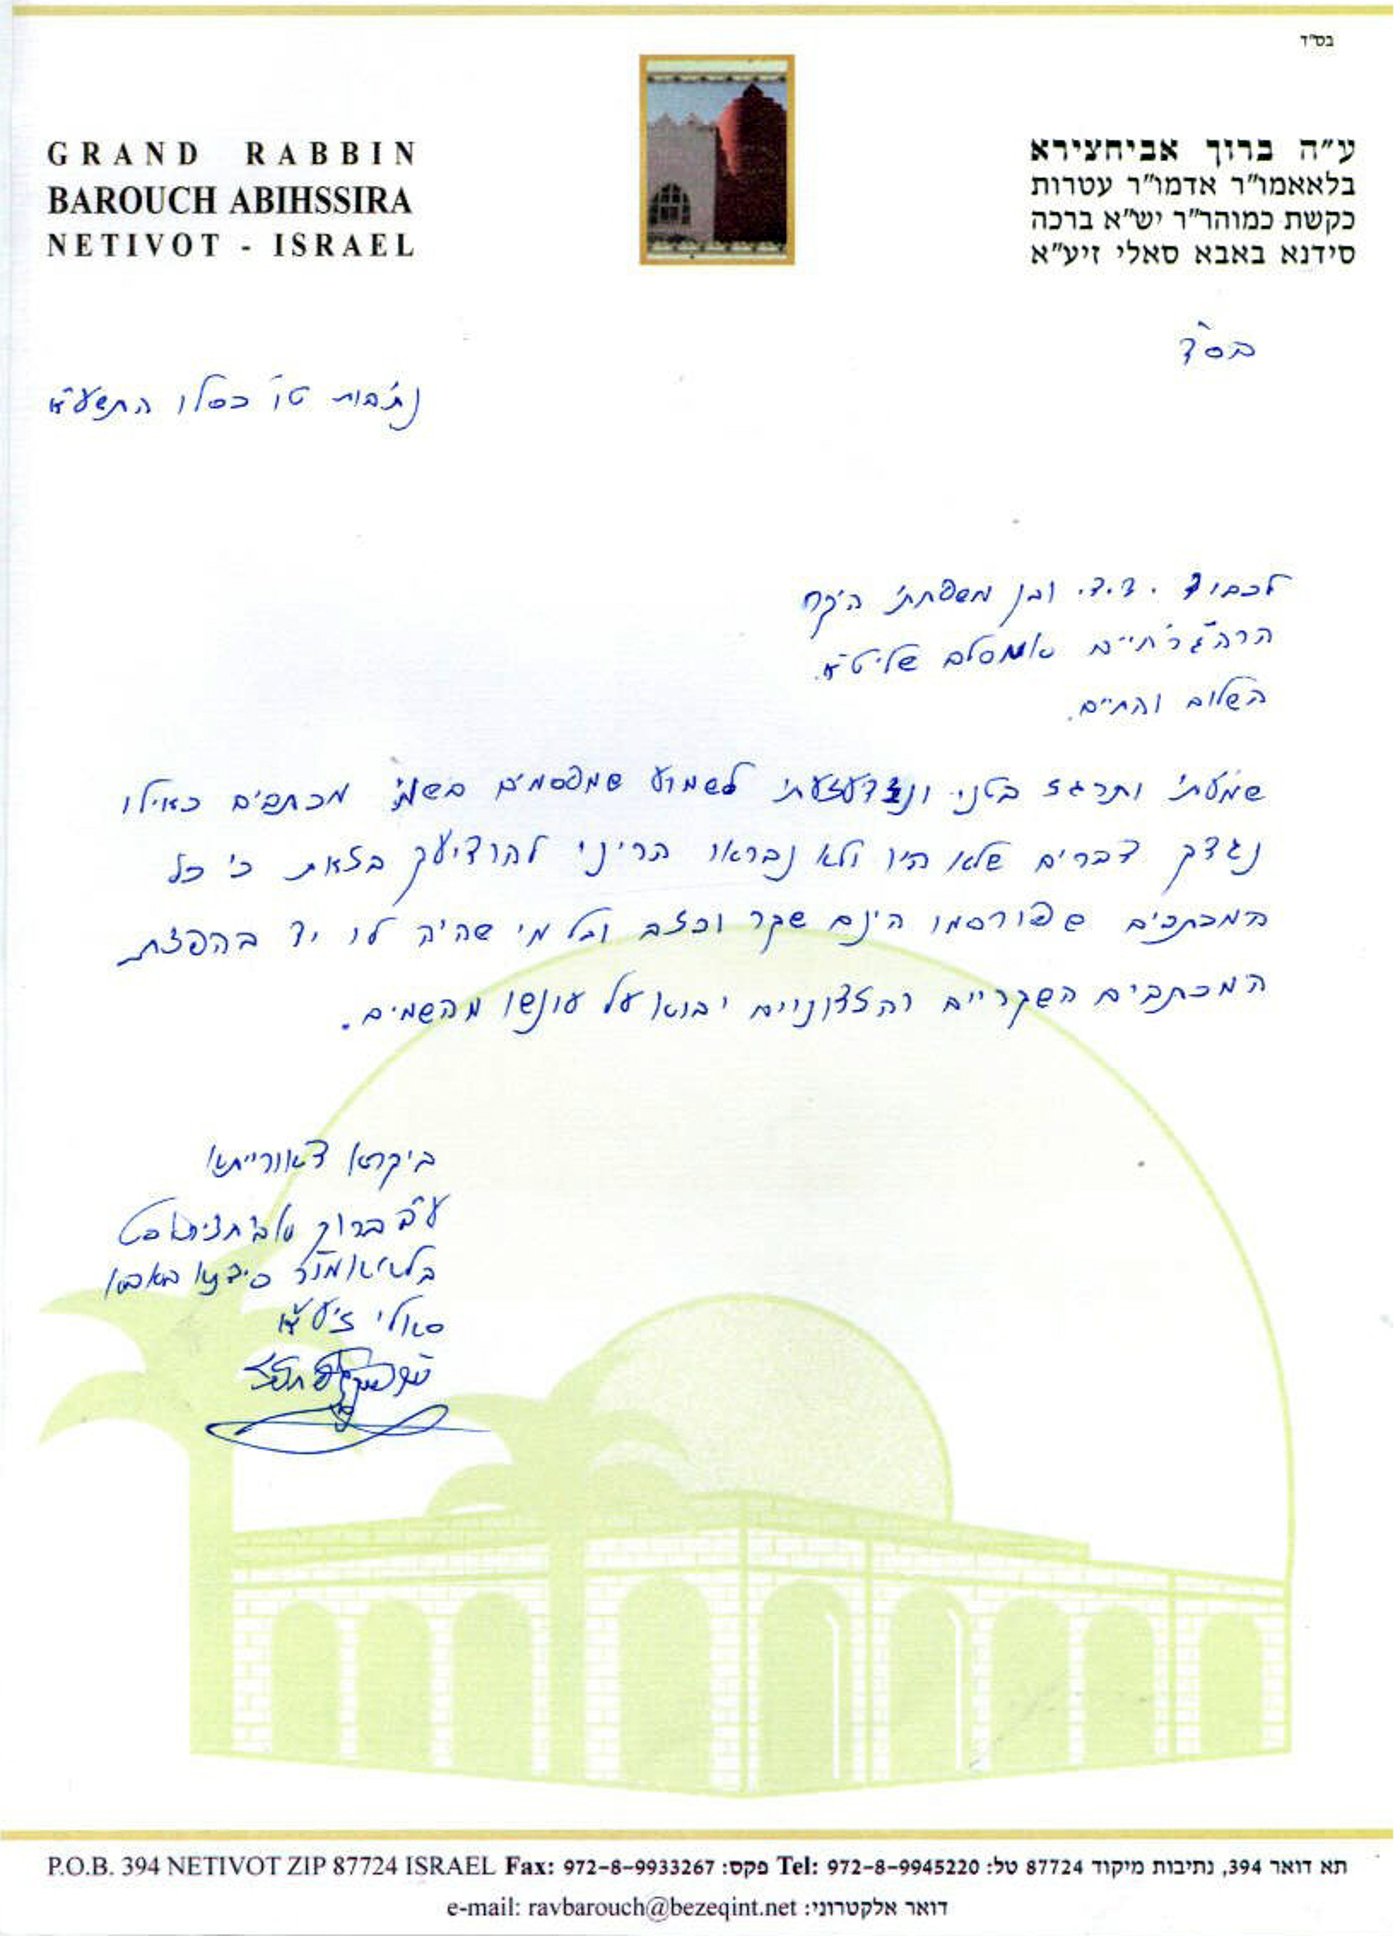 בס"ד
GRAND RABBIN
BAROUCH ABIHSSIRA
NETIVOT - ISRAEL
ע"ה ברוך אביחצירא
בלאאמו"ר אדמו"ר עטרות
כקשת כמוהר"ר יש"א ברכה
סידנא באבא סאלי זיע"א
בס"ד
נתיבות טו' כסלו התשע"א
לכבוד י.ד.ד. ובן משפחתי היקר
הרה"ג ר' חיים אמסלם שליט"א.
השלום והחיים.
שמעתי ותרגז בטני ונזדעזעתי לשמוע שמפרסמים בשמי מכתבים כאילו
נגדך דברים שלא היו ולא נבראו הריני להודיעך בזאת כי כל
המכתבים שפורסמו הינם שקר וכזב וכל מי שהיה לו יד בהפצת
המכתבים השקריים והזדוניים יבוא על עונשו מהשמים.
ביקרא דאורייתא
ע"ה ברוך אביחצירא ס"ט
בלאאמו"ר סידנא באבא
סאלי זיע"א
P.O.B. 394 NETIVOT ZIP 87724 ISRAEL Fax: 972-8-9933267 :פקס Tel: 972-8-9945220 :תא דואר 394, נתיבות מיקוד 87724 טל
e-mail: ravbarouch@bezeqint.net :דואר אלקטרוני